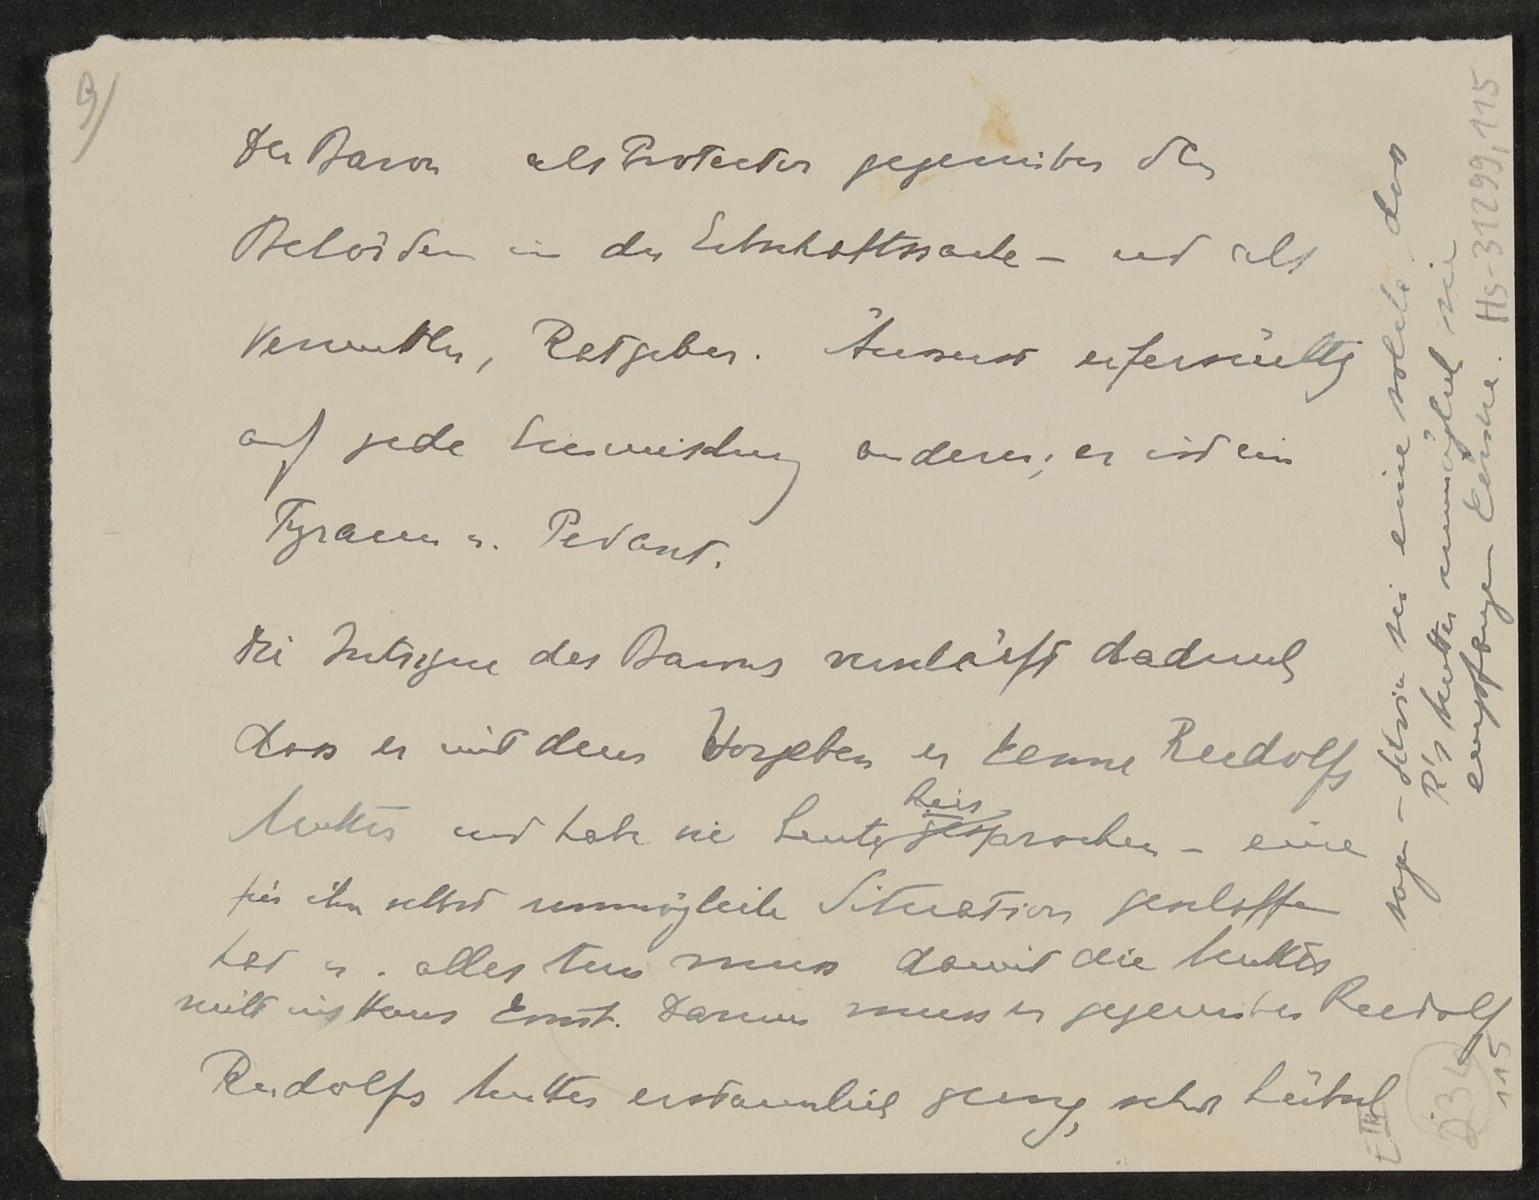 9/
Der Baron als Protector gegenüber den
Behörden in der Erbschaftssache – und als
Vermittler, Ratgeber. Äusserst eifersüchtig
auf jede Einmischung anderer; er ist ein
Tyrann u. Pedant.
Die Intrigue des Barons verläuft dadurch
dass er mit dem Vorgeben er kenne Rudolfs
Mutter und habe sie heute gesprochen – eine
für ihn selbst unmögliche Situation geschaffen
hat u. alles tun muss damit die Mutter
nicht ins Haus kommt. Darum muss er gegenüber Rudolf
Rudolfs Mutter erstaunlich jung, sehr hübsch
sagen – Silvia sei eine solche dass
R's Mutter unmöglich sie
empfangen könne.
Hs-31299,115
E III
234
115